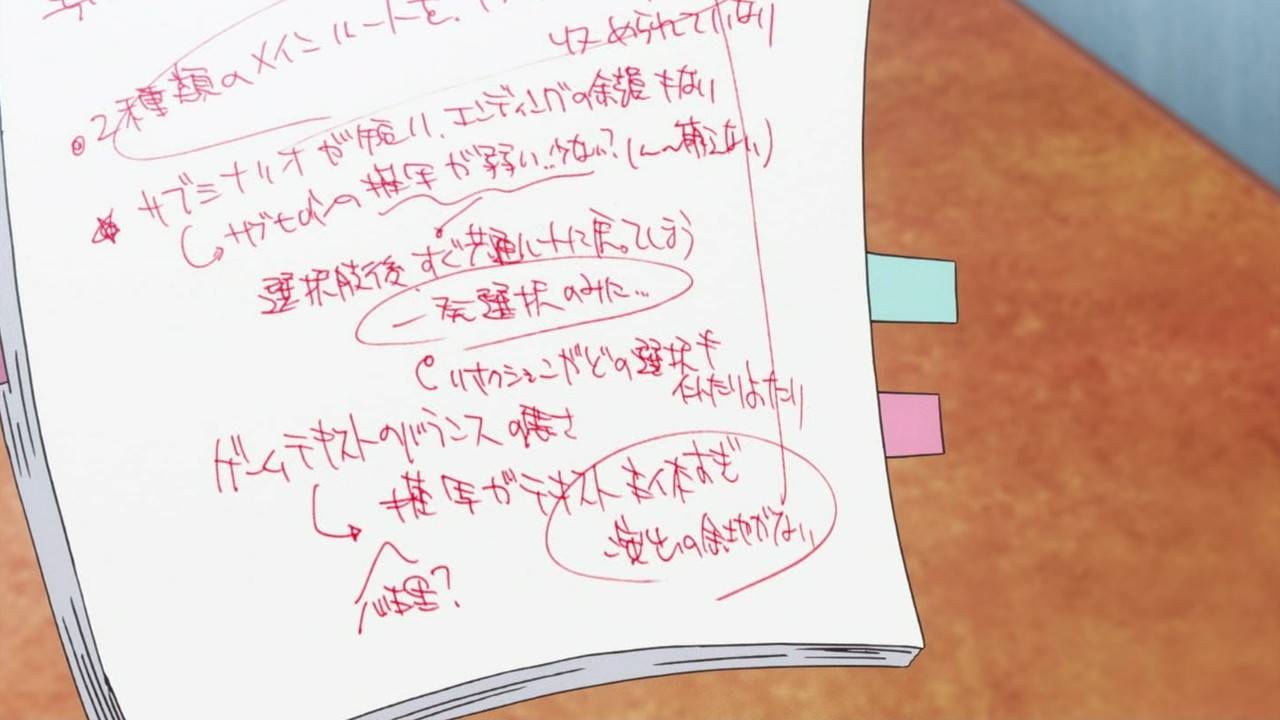 2種類のメインルートを、
められていない
サブシナリオが短い、エンディングの余韻もない
サブヒロインの描写が弱い…少ない?(ん〜萌えない)
選択肢後すぐ共通ルートに戻ってしまう
一発選択のみに…
リアクションがどの選択も
似たりよったり
ゲームテキストのバランスの悪さ
描写がテキスト主体すぎ
演出の余地がない
心理?